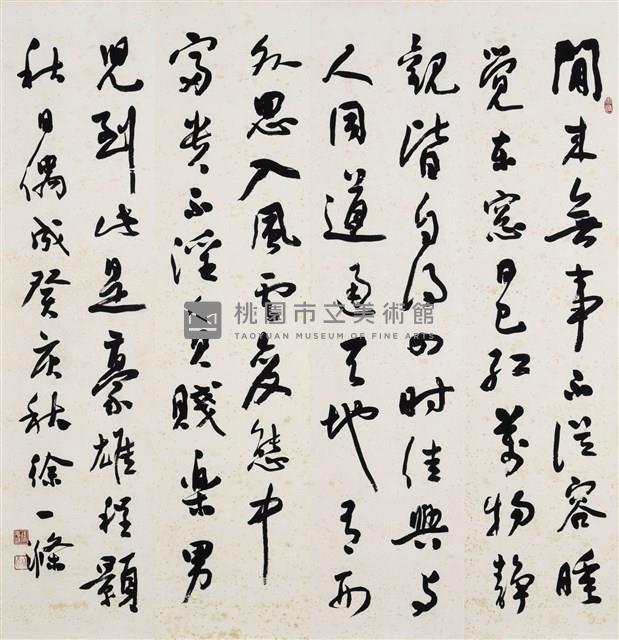 閒来無事不從容睡
覺東窓日已紅萬物静
觀皆自得四時佳興与
人同道通天地有形
外思入風雲變態中
富貴不淫貧賤楽男
児到此是豪雄程顥
秋日偶成癸亥秋徐一
桃園市立美術館
TAOYUAN MUSEUM OF FINE ARTS